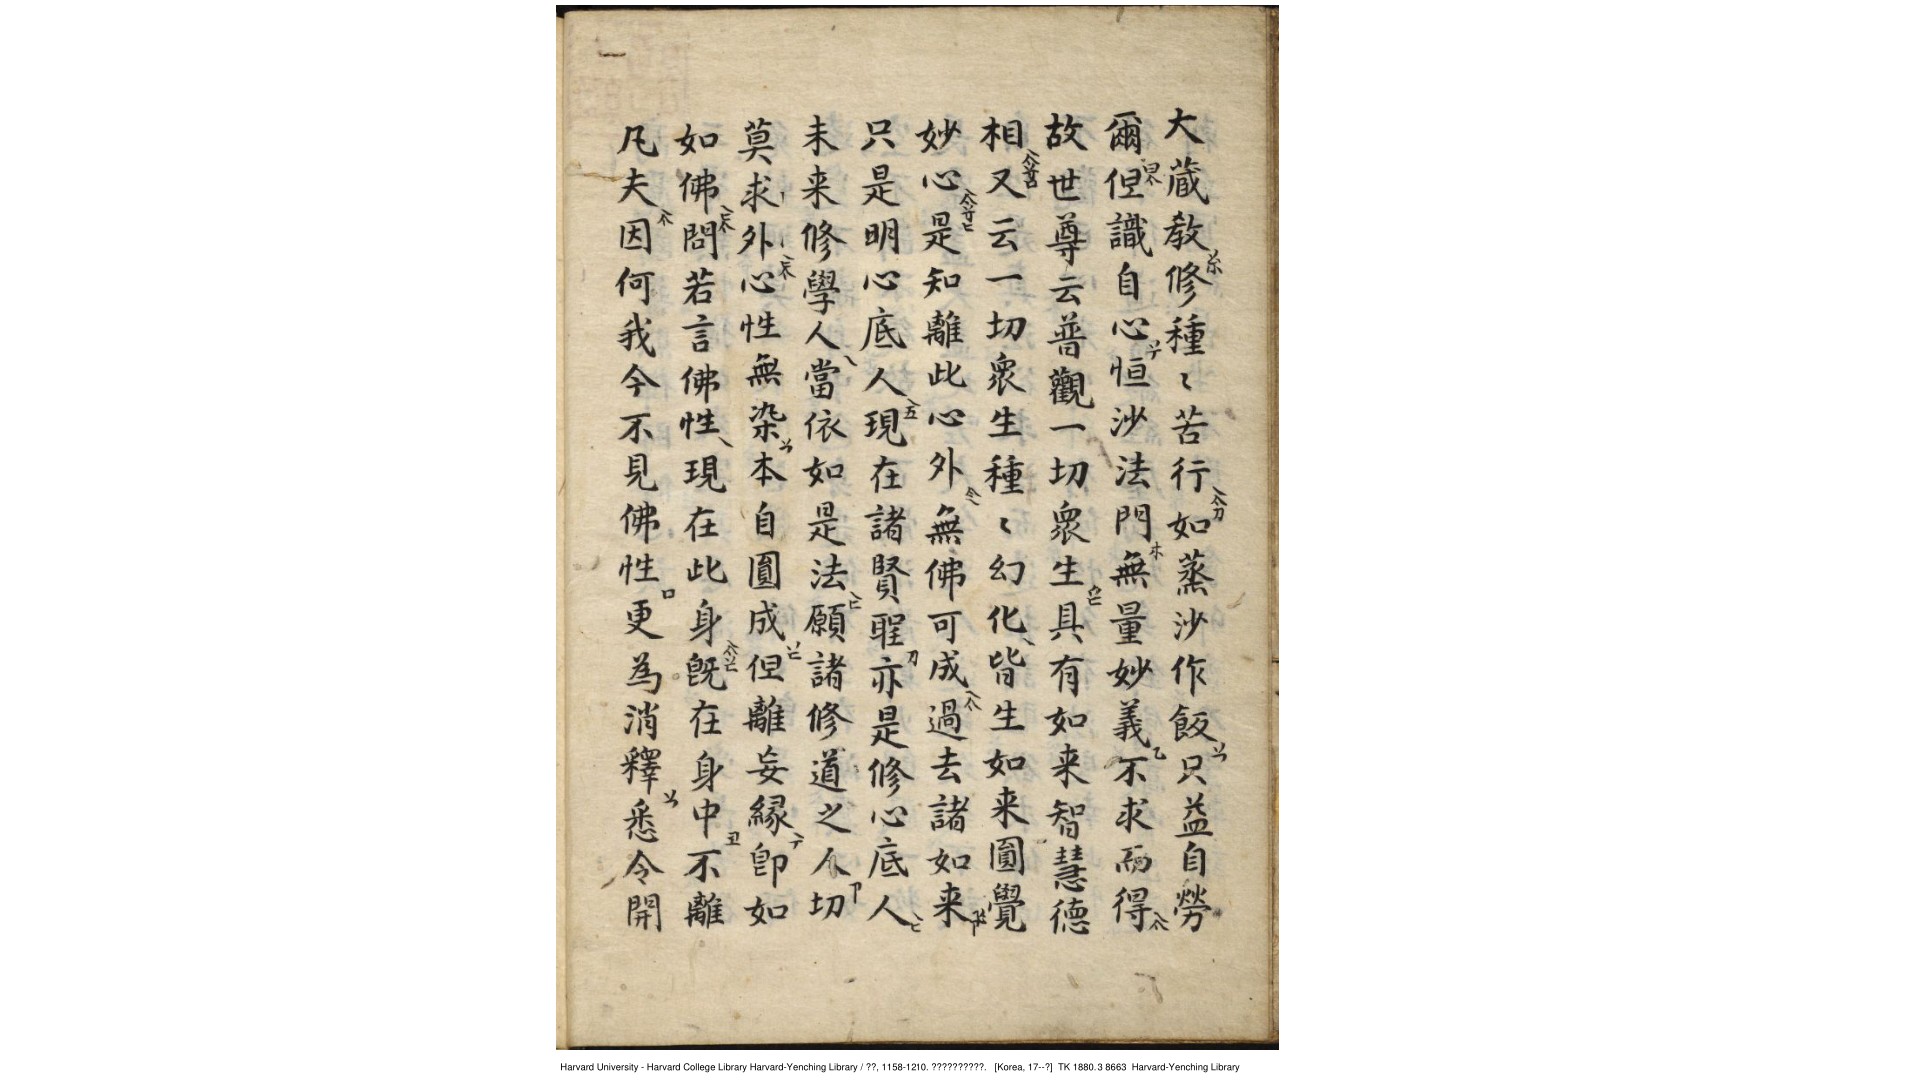 大蔵教修種〻苦行如蒸沙作飯只益自勞
爾但識自心恒沙法門無量妙義不求而得
故世尊云普觀一切衆生具有如来智慧德
相又云一切衆生種〻幻化皆生如来圓覺
妙心是知離此心外無佛可成過去諸如来
只是明心底人現在諸賢聖亦是修心底人
未来修學人當依如是法願諸修道之人切
莫求外心性無染本自圓成但離妄緣卽如
如佛問若言佛性現在此身既在身中不離
凡夫因何我今不見佛性更為消釋悉令開
Harvard University - Harvard College Library Harvard-Yenching Library / ??, 1158-1210. ??????????. [Korea, 17--?] TK 1880.3 8663 Harvard-Yenching Library